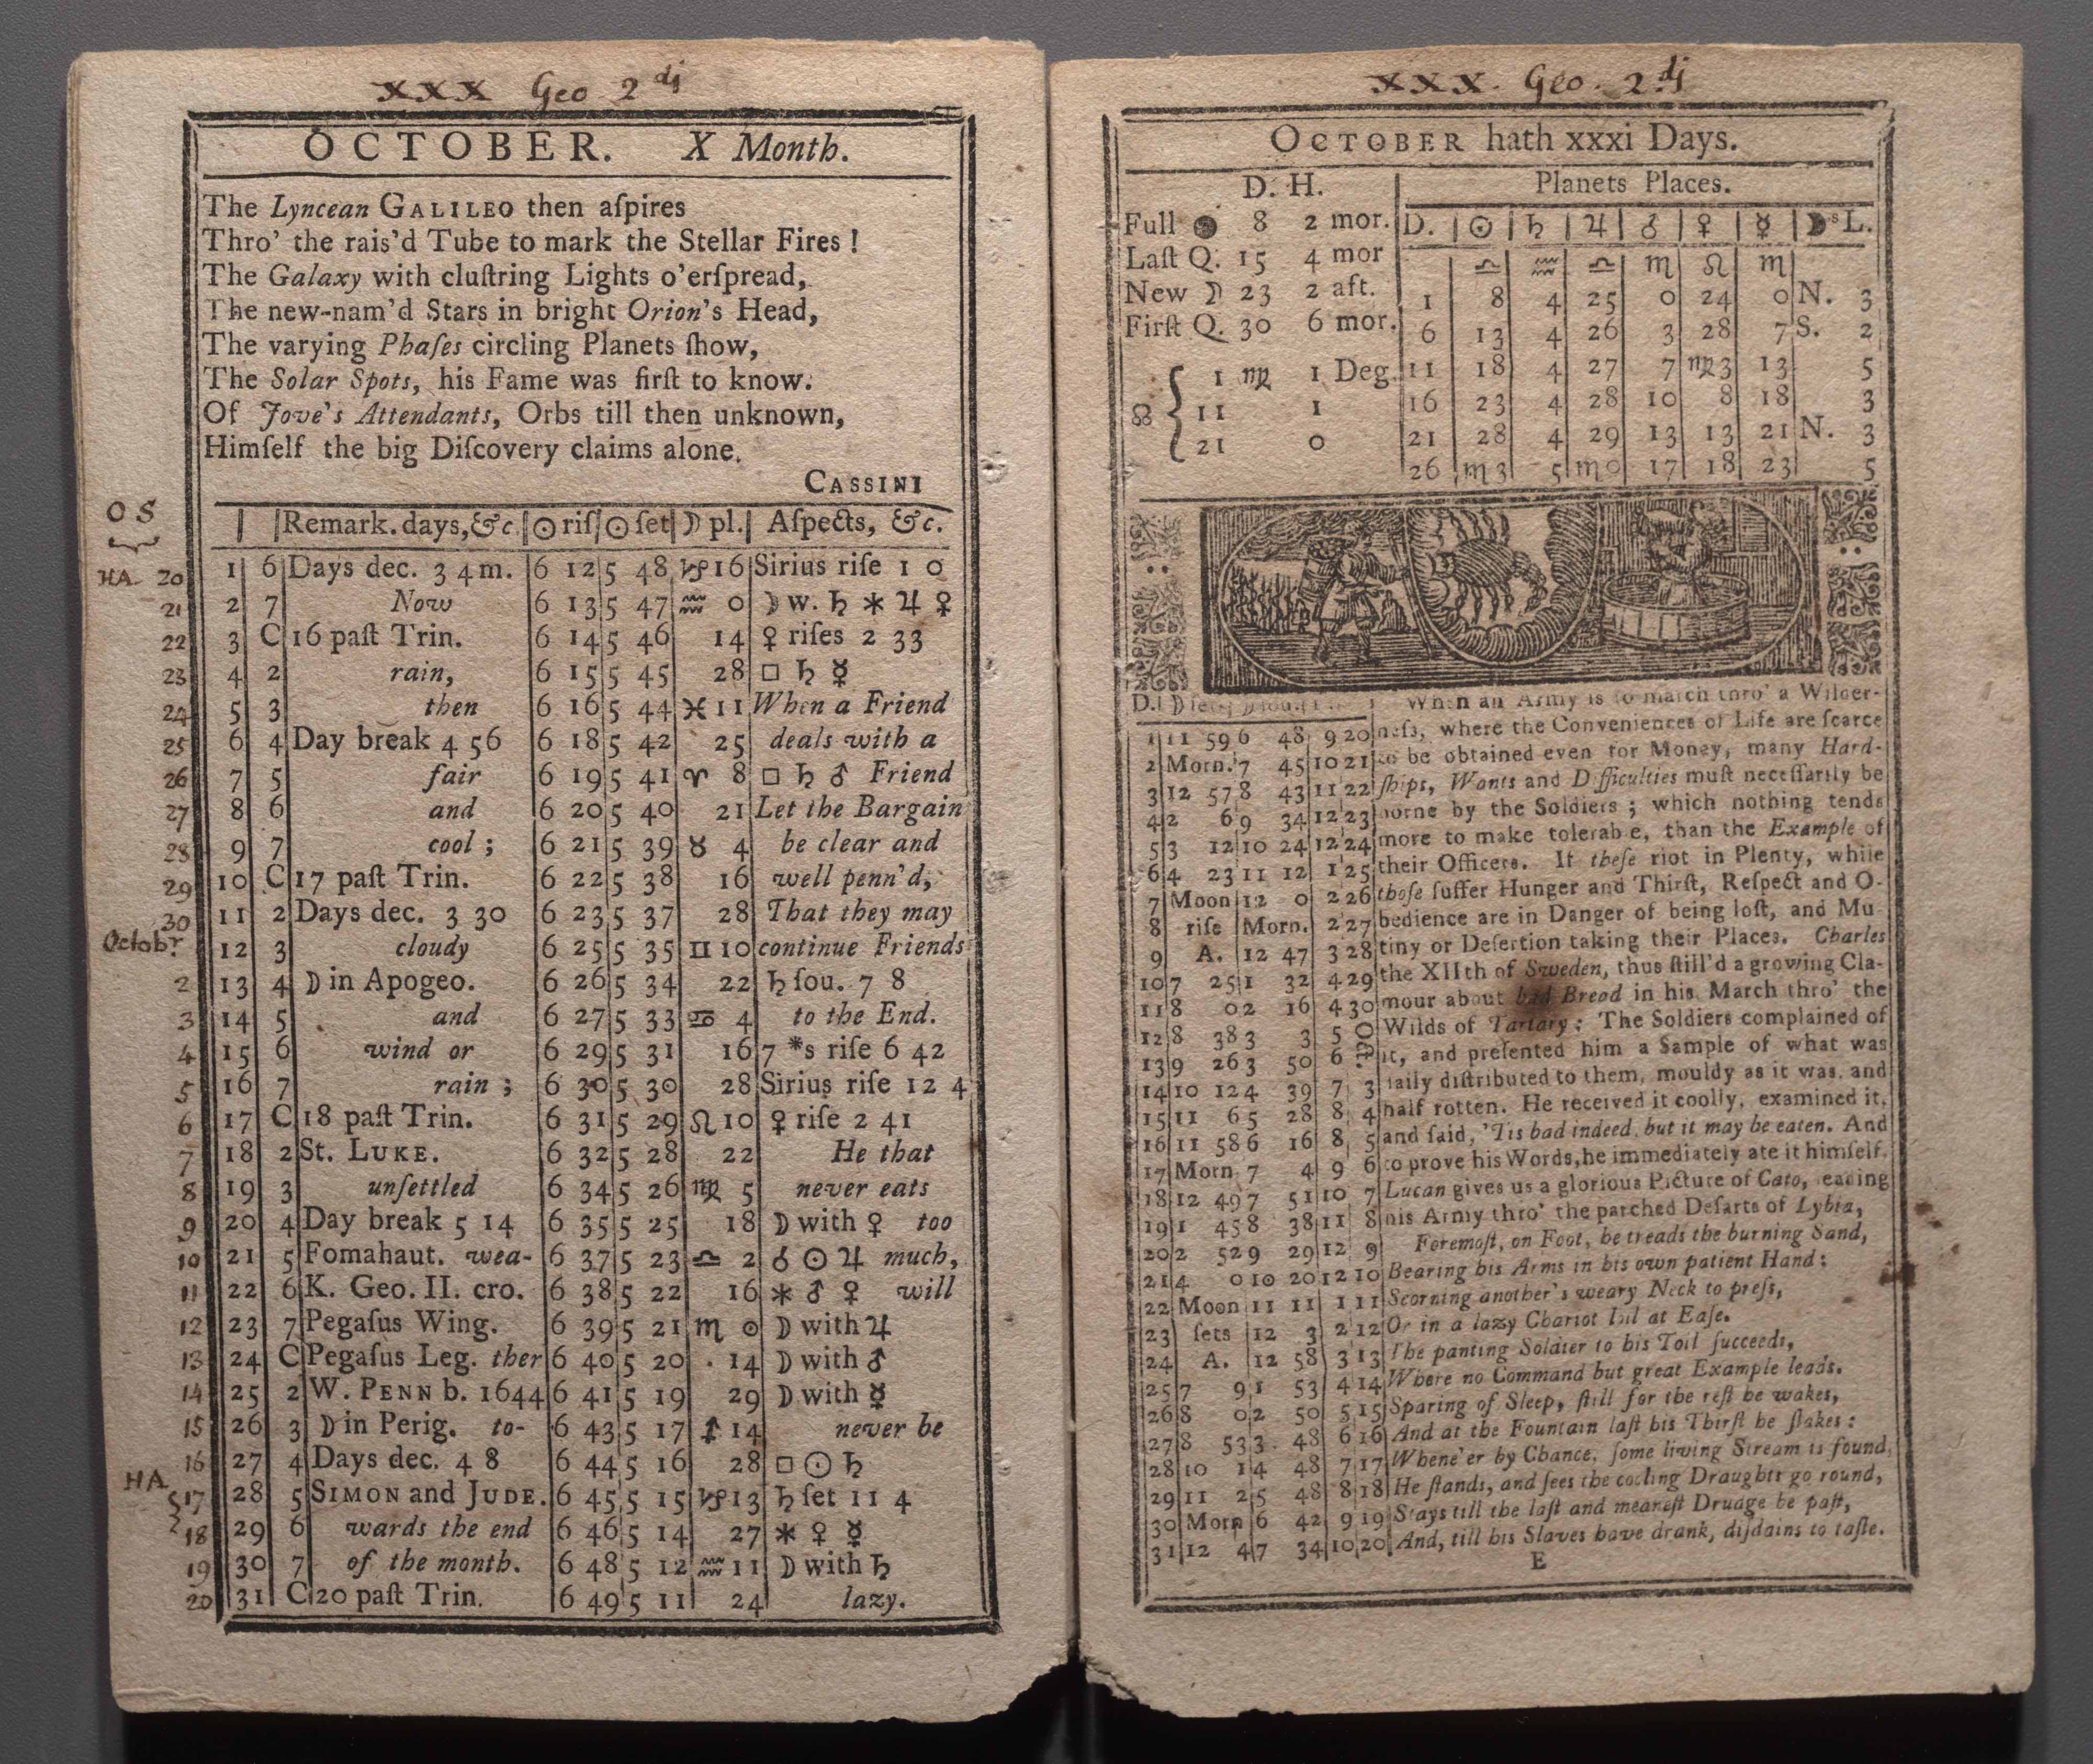 XXX Geo 2di
OCTOBER. X Month.
The Lyncean GALILEO then aſpires
Thro' the rais'd Tube to mark the Stellar Fires !
The Galaxy with cluſtring Lights o'erſpread,
The new-nam'd Stars in bright Orion's Head,
The varying Phaſes circling Planets ſhow,
The Solar Spots, his Fame was firſt to know.
Of Jove's Attendants, Orbs till then unknown,
Himſelf the big Diſcovery claims alone.
CASSINI
OS
Remark. days, &c. ☉ riſ ☉ ſet ☽ pl. Aſpects, &c.
HA 20 1 6 Days dec. 3 4 m. 6 12 5 48 ♑ 16 Sirius riſe 1 0
21 2 7 Now 6 13 5 47 ♒ 0 ☽ w. ♄ ⚹ ♃ ♀
22 3 C 16 paſt Trin. 6 14 5 46 14 ♀ riſes 2 33
23 4 2 rain, 6 15 5 45 28 □ ♄ ☿
24 5 3 then 6 16 5 44 ♓ 11 When a Friend
25 6 4 Day break 4 56 6 18 5 42 25 deals with a
26 7 5 fair 6 19 5 41 ♈ 8 □ ♄ ♂ Friend
27 8 6 and 6 20 5 40 21 Let the Bargain
28 9 7 cool ; 6 21 5 39 ♉ 4 be clear and
29 10 C 17 paſt Trin. 6 22 5 38 16 well penn'd,
30 11 2 Days dec. 3 30 6 23 5 37 28 That they may
Octobr 12 3 cloudy 6 25 5 35 ♊ 10 continue Friends
2 13 4 ☽ in Apogeo. 6 26 5 34 22 ♄ ſou. 7 8
3 14 5 and 6 27 5 33 ♋ 4 to the End.
4 15 6 wind or 6 29 5 31 16 7 *s riſe 6 42
5 16 7 rain ; 6 30 5 30 28 Sirius riſe 12 4
6 17 C 18 paſt Trin. 6 31 5 29 ♌ 10 ♀ riſe 2 41
7 18 2 St. LUKE. 6 32 5 28 22 He that
8 19 3 unſettled 6 34 5 26 ♍ 5 never eats
9 20 4 Day break 5 14 6 35 5 25 18 ☽ with ♀ too
10 21 5 Fomahaut. wea- 6 37 5 23 ♎ 2 ☌ ☉ ♃ much,
11 22 6 K. Geo. II. cro. 6 38 5 22 16 ⚹ ♂ ♀ will
12 23 7 Pegaſus Wing. 6 39 5 21 ♏ 0 ☽ with ♃
13 24 C Pegaſus Leg. ther 6 40 5 20 14 ☽ with ♂
14 25 2 W. PENN b. 1644 6 41 5 19 29 ☽ with ☿
15 26 3 ☽ in Perig. to- 6 43 5 17 ♐ 14 never be
16 27 4 Days dec. 4 8 6 44 5 16 28 □ ☉ ♄
HA 17 28 5 SIMON and JUDE. 6 45 5 15 ♑ 13 ♄ ſet 11 4
18 29 6 wards the end 6 46 5 14 27 ⚹ ♀ ☿
19 30 7 of the month. 6 48 5 12 ♒ 11 ☽ with ♄
20 31 C 20 paſt Trin. 6 49 5 11 24 lazy.
XXX. Geo. 2.di
OCTOBER hath xxxi Days.
D. H.
Full ● 8 2 mor.
Laſt Q. 15 4 mor
New ☽ 23 2 aft.
Firſt Q. 30 6 mor.
☊ 1 ♍ 1 Deg.
11 1
21 0
Planets Places.
D. ☉ ♄ ♃ ♂ ♀ ☿ ☽s L.
♎ ♒ ♎ ♏ ♌ ♏
1 8 4 25 0 24 0 N. 3
6 13 4 26 3 28 7 S. 2
11 18 4 27 7 ♍3 13 5
16 23 4 28 10 8 18 3
21 28 4 29 13 13 21 N. 3
26 ♏ 3 5 ♏ 0 17 18 23 5
1 11 59 6 48 9 20
2 Morn. 7 45 10 21
3 12 57 8 43 11 22
4 2 6 9 34 12 23
5 3 12 10 24 12 24
6 4 23 11 12 1 25
7 Moon 12 0 2 26
8 riſe Morn. 2 27
9 A. 12 47 3 28
10 7 25 1 32 4 29
11 8 0 2 16 4 30
12 8 38 3 3 5 Oct.
13 9 26 3 50 6
14 10 12 4 39 7 3
15 11 6 5 28 8 4
16 11 58 6 16 8 5
17 Morn 7 4 9 6
18 12 49 7 51 10 7
19 1 45 8 38 11 8
20 2 52 9 29 12 9
21 4 0 10 20 12 10
22 Moon 11 11 1 11
23 ſets 12 3 2 12
24 A. 12 58 3 13
25 7 9 1 53 4 14
26 8 0 2 50 5 15
27 8 53 3 48 6 16
28 10 1 4 48 7 17
29 11 2 5 48 8 18
30 Morn 6 42 9 19
31 12 4 7 34 10 20
When an Army is to march thro' a Wilder-
neſs, where the Conveniences of Life are ſcarce
to be obtained even for Money, many Hard-
ſhips, Wants and Difficulties muſt neceſſarily be
borne by the Soldiers ; which nothing tends
more to make tolerable, than the Example of
their Officers. If theſe riot in Plenty, while
thoſe ſuffer Hunger and Thirſt, Reſpect and O-
bedience are in Danger of being loſt, and Mu
tiny or Deſertion taking their Places. Charles
the XIIth of Sweden, thus ſtill'd a growing Cla-
mour about bad Bread in his March thro' the
Wilds of Tartary ; The Soldiers complained of
it, and preſented him a Sample of what was
daily diſtributed to them, mouldy as it was, and
half rotten. He received it coolly, examined it,
and ſaid, 'Tis bad indeed, but it may be eaten. And
to prove his Words, he immediately ate it himſelf.
Lucan gives us a glorious Picture of Cato, leading
his Army thro' the parched Deſarts of Lybia,
Foremoſt, on Foot, he treads the burning Sand,
Bearing his Arms in his own patient Hand ;
Scorning another's weary Neck to preſs,
Or in a lazy Chariot loll at Eaſe.
The panting Soldier to his Toil ſucceeds,
Where no Command but great Example leads.
Sparing of Sleep, ſtill for the reſt he wakes,
And at the Fountain laſt his Thirſt he ſlakes :
Whene'er by Chance, ſome living Stream is found,
He ſtands, and ſees the cooling Draughts go round,
Stays till the laſt and meaneſt Drudge be paſt,
And, till his Slaves have drank, diſdains to taſte.
E